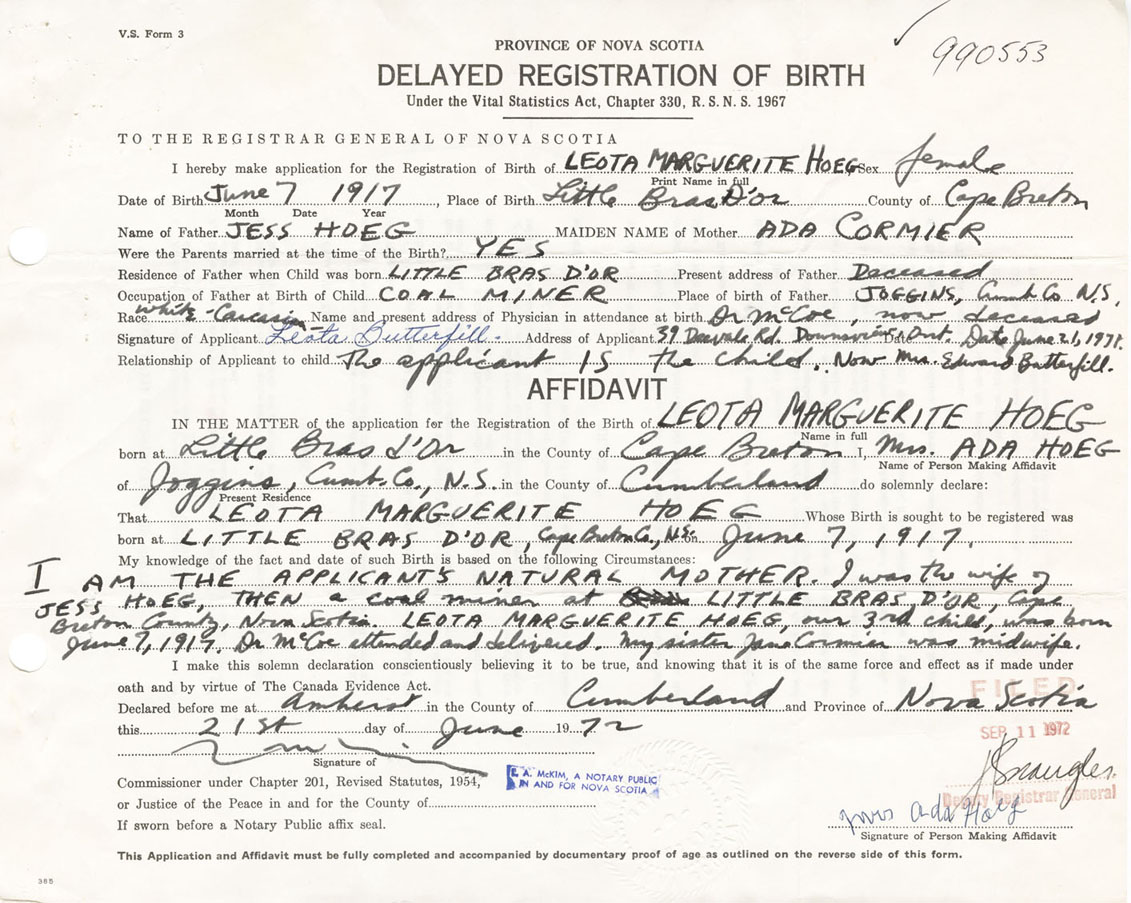 V.S. Form 3
990553
PROVINCE OF NOVA SCOTIA
DELAYED REGISTRATION OF BIRTH
Under the Vital Statistics Act, Chapter 330, R.S.N.S. 1967
TO THE REGISTRAR GENERAL OF NOVA SCOTIA
I hereby make application for the Registration of Birth of LEOTA MARGUERITE HOEG Sex female
Print Name in full
Date of Birth June 7 1917, Place of Birth Little Bras D'or County of Cape Breton
Month Date Year
Name of Father JESS HOEG MAIDEN NAME of Mother ADA CORMIER
Were the Parents married at the time of the Birth? YES
Residence of Father when Child was born LITTLE BRAS D'OR Present address of Father Deceased
Occupation of Father at Birth of Child COAL MINER Place of birth of Father JOGGINS, Cumb. Co. N.S.
Race White - Caucasian Name and present address of Physician in attendance at birth Dr McCoe, now deceased
Signature of Applicant Leota Butterfill. Address of Applicant 39 Rd. Downsview, Ont. Date June 21, 1971.
Relationship of Applicant to child The applicant IS the child. Now Mrs. Edward Butterfill.
AFFIDAVIT
IN THE MATTER of the application for the Registration of the Birth of LEOTA MARGUERITE HOEG
Name in full
born at Little Bras d'Or in the County of Cape Breton I, Mrs. ADA HOEG
Name of Person Making Affidavit
of Joggins, Cumb. Co., N.S. in the County of Cumberland do solemnly declare:
Present Residence
That LEOTA MARGUERITE HOEG Whose Birth is sought to be registered was
born at LITTLE BRAS D'OR, Cape Breton Co., N.S. on June 7, 1917.
My knowledge of the fact and date of such Birth is based on the following Circumstances:
I AM THE APPLICANT'S NATURAL MOTHER. I was the wife of
JESS HOEG, THEN a coal miner at LITTLE BRAS D'OR, Cape
Breton County, Nova Scotia. LEOTA MARGUERITE HOEG, our 3rd child, was born
June 7, 1917. Dr McCoe attended and delivered. My sister Jane Cormier was midwife.
I make this solemn declaration conscientiously believing it to be true, and knowing that it is of the same force and effect as if made under
oath and by virtue of The Canada Evidence Act.
FILED
Declared before me at Amherst in the County of Cumberland and Province of Nova Scotia
this 21st day of June 1972
SEP 11 1972
Signature of
Commissioner under Chapter 201, Revised Statutes, 1954,
E. A. McKIM, A NOTARY PUBLIC
IN AND FOR NOVA SCOTIA
or Justice of the Peace in and for the County of
Deputy Registrar General
Mrs Ada Hoeg
If sworn before a Notary Public affix seal.
Signature of Person Making Affidavit
This Application and Affidavit must be fully completed and accompanied by documentary proof of age as outlined on the reverse side of this form.
385